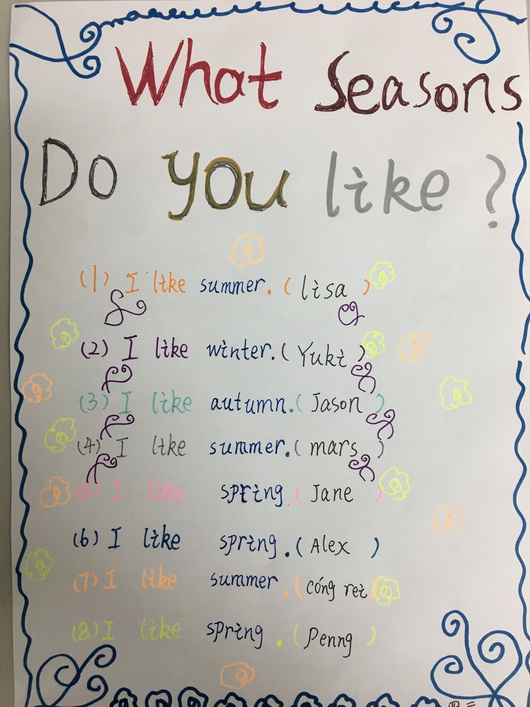 What Seasons
Do you like ?
(1) I like summer. (lisa)
(2) I like winter. (Yuki)
(3) I like autumn. (Jason)
(4) I like summer. (mars)
(5) I like spring. (Jane)
(6) I like spring. (Alex)
(7) I like summer. (cóng rei)
(8) I like spring. (Penng)